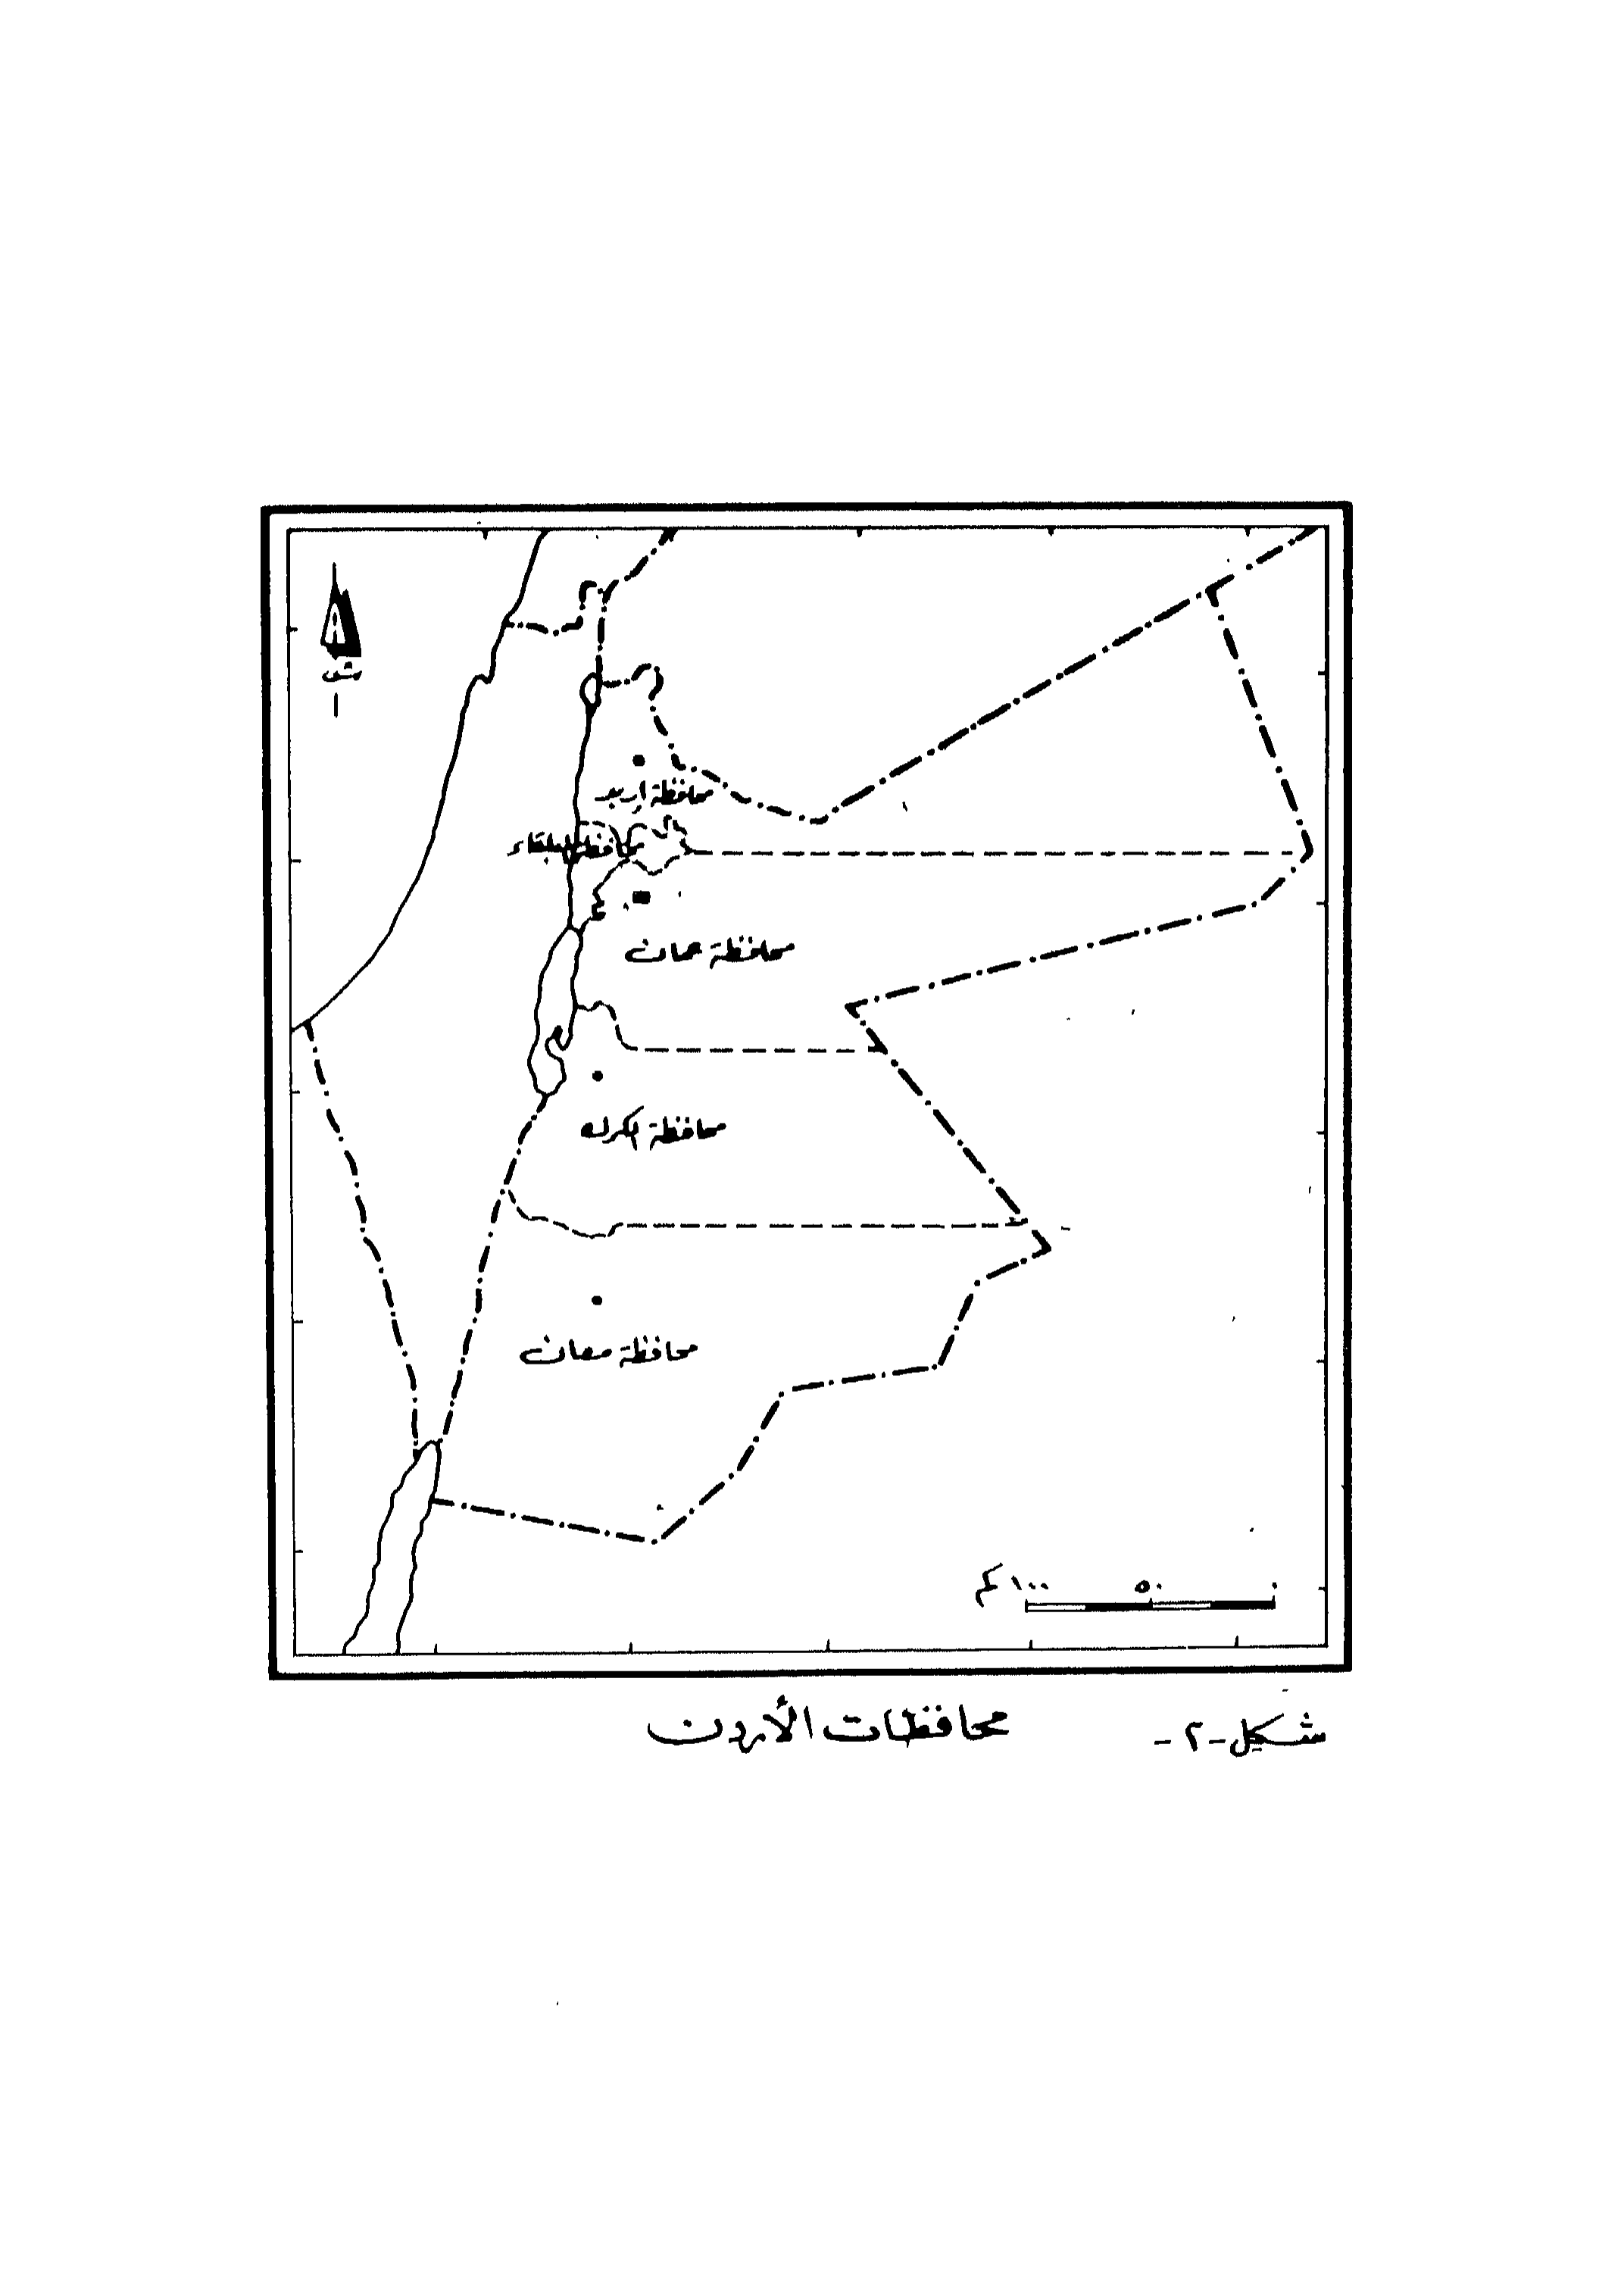 ش
محافظة اربد
محافظة البلقاء
محافظة عمان
محافظة الكرك
محافظة معان
٠ ٥٠ ١٠٠ كم
شكل -٢- محافظات الأردن